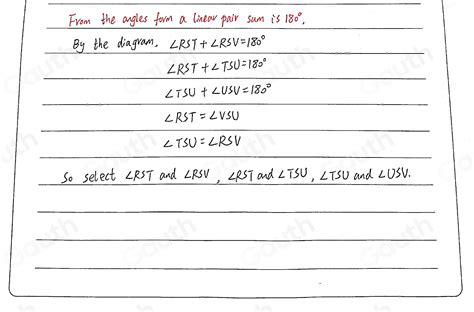 From the angles form a linear pair sum is 180°.
By the diagram. ∠RST + ∠RSV = 180°
∠RST + ∠TSU = 180°
∠TSU + ∠USV = 180°
∠RST = ∠VSU
∠TSU = ∠RSV
So select ∠RST and ∠RSV, ∠RST and ∠TSU, ∠TSU and ∠USV.